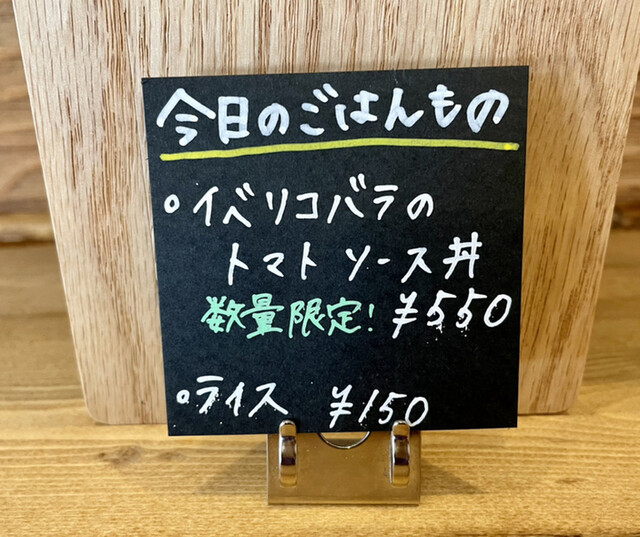 今日のごはんもの
○イベリコバラの
トマトソース丼
数量限定! ¥550
○ライス ¥150